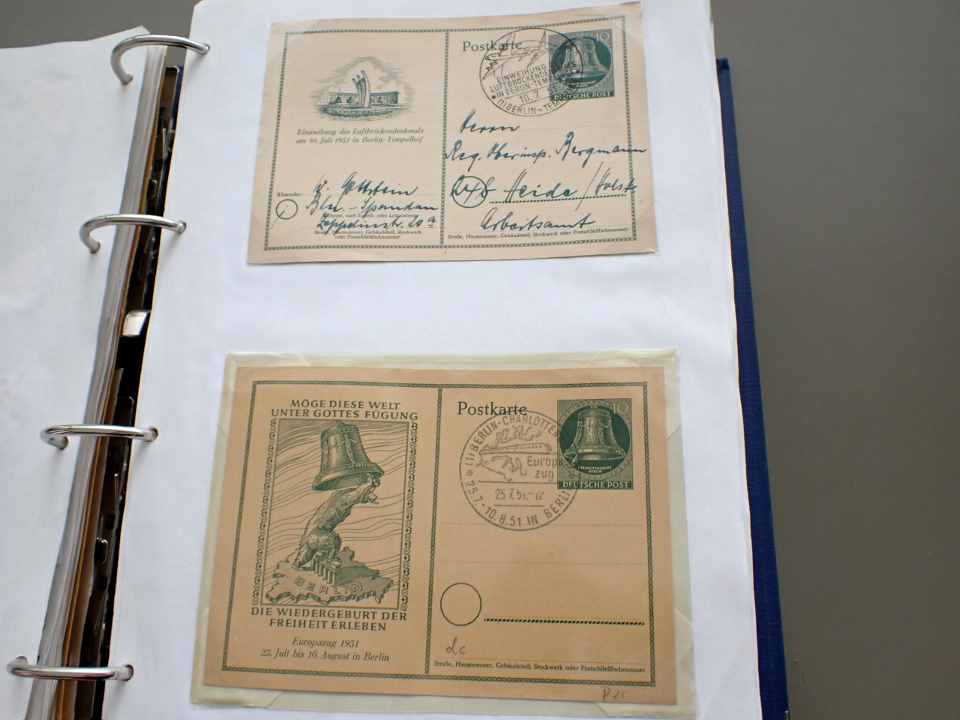 Postkarte
10
EINWEIHUNG
IN BERLIN-TEM
10.7.
(1) BERLIN-TE
DEUTSCHE POST
Einweihung des Luftbrückendenkmals
am 10. Juli 1951 in Berlin-Tempelhof
Herrn
Reg. Oberinsp. Bergmann
Heide / Holst
Arbeitsamt
Absender:
Bln.-Spandau
Straße, Hausnummer, Gebäudeteil, Stockwerk oder Postschließfachnummer
MÖGE DIESE WELT
UNTER GOTTES FÜGUNG
BERLIN
DIE WIEDERGEBURT DER
FREIHEIT ERLEBEN
Europazug 1951
25. Juli bis 10. August in Berlin
Postkarte
10
DEUTSCHE POST
(1) BERLIN-CHARLOTTEN
Europa
zug
25.7.51.-12
25.7.-10.8.51 IN BERLIN
Straße, Hausnummer, Gebäudeteil, Stockwerk oder Postschließfachnummer